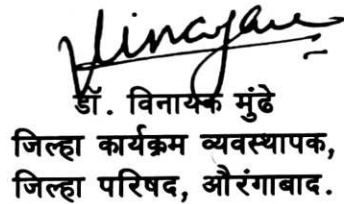 Vinayak
डॉ. विनायक मुंढे
जिल्हा कार्यक्रम व्यवस्थापक,
जिल्हा परिषद, औरंगाबाद.